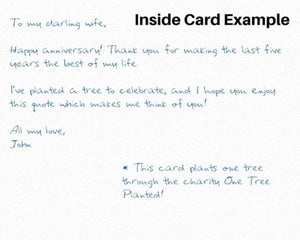 Inside Card Example
To my darling wife,
Happy anniversary! Thank you for making the last five
years the best of my life.
I've planted a tree to celebrate, and I hope you enjoy
this quote which makes me think of you!
All my love,
John
* This card plants one tree
through the charity One Tree
Planted!